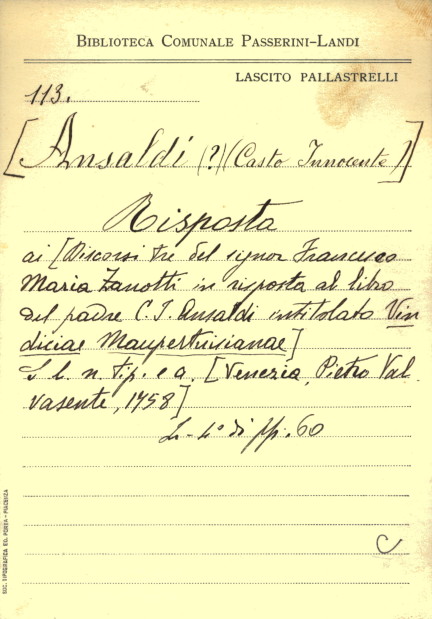 BIBLIOTECA COMUNALE PASSERINI-LANDI
LASCITO PALLASTRELLI
113.
[Ansaldi (?) (Casto Innocente)]
Risposta
ai [Discorsi tre del signor Francesco
Maria Zanotti in risposta al libro
del padre C. I. Ansaldi intitolato Vin
diciae Maupertuisianae]
S. l. n. tip. e a. [Venezia, Pietro Val-
vasente, 1758]
In-4° di pp. 60
C
SOC. TIPOGRAFICA ED. PORTA - PIACENZA